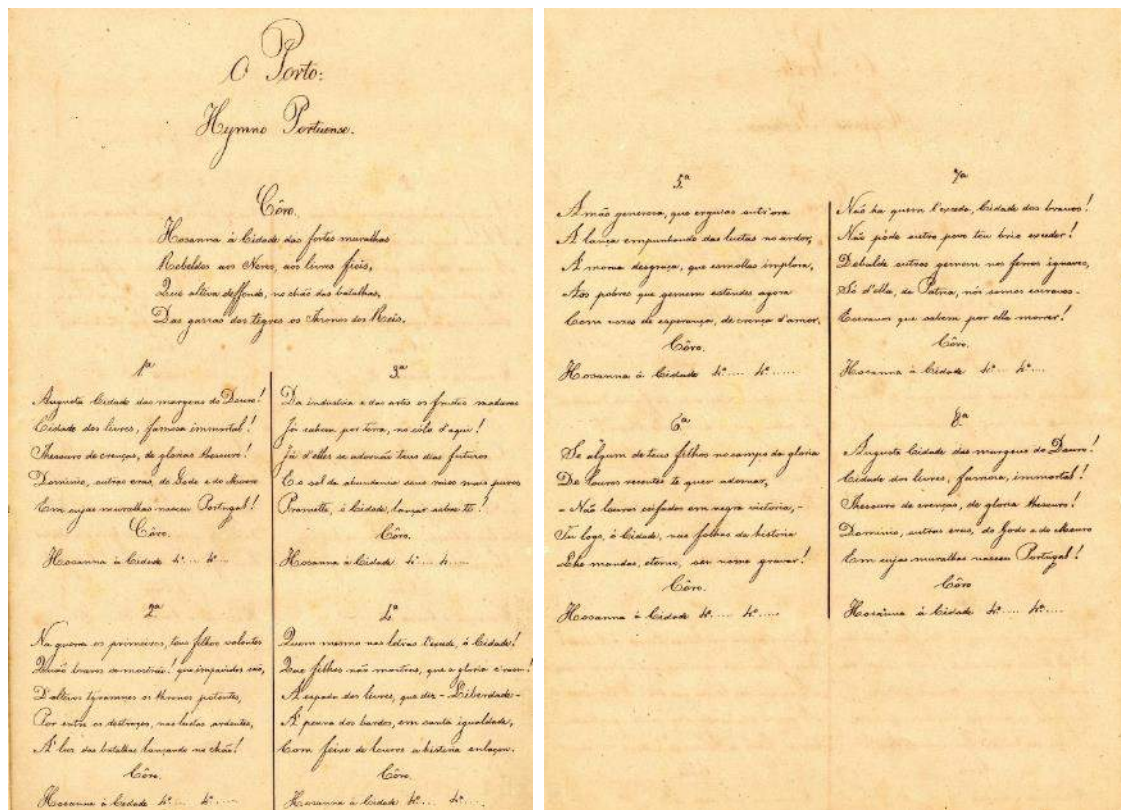 O Porto:
Hymno Portuense.
Côro.
Hosanna á Cidade das fortes muralhas
Rebeldes aos Neros, aos livres fieis,
Que altiva deffende, no chão das batalhas,
Das garras dos tigres os thronos dos Reis.
1ª
Augusta Cidade das margens do Douro!
Cidade dos livres, famosa immortal!
Thesouro de crenças, de glorias thesouro!
Dominio, outras eras, do Godo e do Mouro
Em cujas muralhas nasceu Portugal!
Côro.
Hosanna á Cidade &ª.... &ª....
2ª
Na guerra os primeiros, teus filhos valentes
Quão bravos se mostrão! que impavidos são,
D'altivos tyrannos os thronos potentes,
Por entre os destroços, nas luctas ardentes,
Á luz das batalhas lançando no chão!
Côro.
Hosanna á Cidade &ª.... &ª.....
3ª
Da industria e das artes os fructos maduros
Já cobrem por terra, no sólo d'aqui!
Já d'elles se adornão teus dias futuros
E o sol da abundancia seus raios mais puros
Promette, ó Cidade, lançar sobre ti!
Côro.
Hosanna á Cidade &ª.... &.....
4ª
Quem mesmo nas letras t'excede, ó Cidade!
Que filhos não mostras, que a gloria
A espada dos livres, que diz - Liberdade -
Á penna dos bardos, em santa igualdade,
Com feixe de louros a historia enlaçou.
Côro.
Hosanna á Cidade &ª.... &ª....
5ª
A mão generosa, que erguias outr'ora
A lança empunhando das luctas no ardor,
Á morna desgraça, que esmollas implora,
Aos pobres que gemem estendes agora
Com vozes de esperança, de crença d'amor.
Côro.
Hosanna á Cidade &ª.... &ª.....
6ª
Se algum de teus filhos no campo da gloria
De louros recentes te quer adornar,
- Não louros ceifados em negra victoria, -
Tu logo, ó Cidade, nas folhas da historia
Lhe mandas, eterno, seu nome gravar!
Côro.
Hosanna á Cidade &ª.... &ª....
7ª
Não ha quem t'exceda, Cidade dos bravos!
Não póde outro povo teu brio exceder!
Debalde outros gemem nos ferros ignavos,
Só d'ella, da Patria, nós somos escravos -
Escravos que sabem por ella morrer!
Côro.
Hosanna á Cidade &ª.... &ª.....
8ª
Augusta Cidade das margens do Douro!
Cidade dos livres, famosa, immortal!
Thesouro de crenças, de gloria thesouro!
Dominio, outras eras, do Godo e do Mouro
Em cujas muralhas nasceu Portugal!
Côro
Hosanna á Cidade &ª.... &ª.....